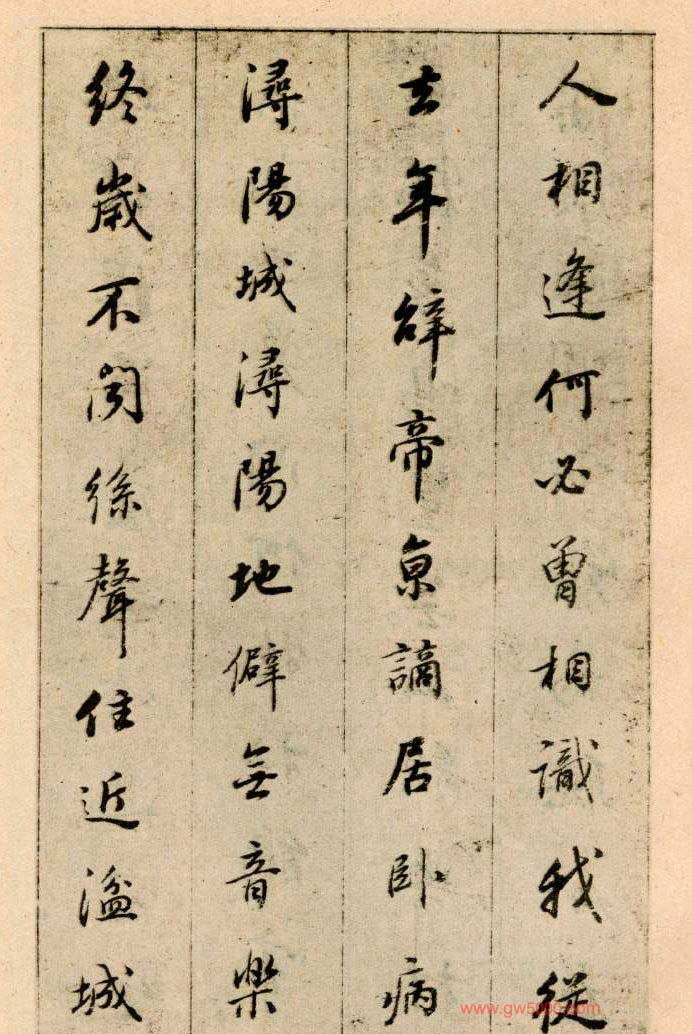 人相逢何必曾相識我從
去年辭帝京謫居卧病
潯陽城潯陽地僻無音樂
終歲不聞絲聲住近湓城
www.gw5000.com